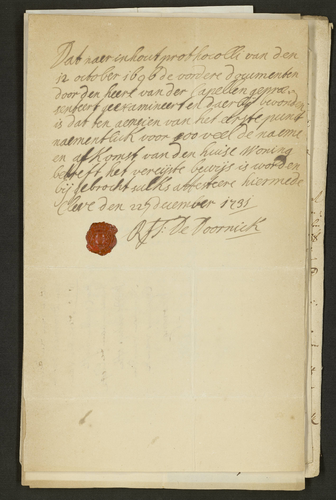 Dat naer inhout prothocolli van den
12 october 1696 de vordere documenten
door den heere van der Capellen geprae
senteert geexamineert en daer bij bevonden
is dat ten aensien van het eerste punct
naementlick voor soo veel de naeme
en afkomst van den huise Woning
betreft het vereijste bewijs is worden
bijgebrocht welks attestere hiermede
Cleve den 22 december 1731
De Doornick